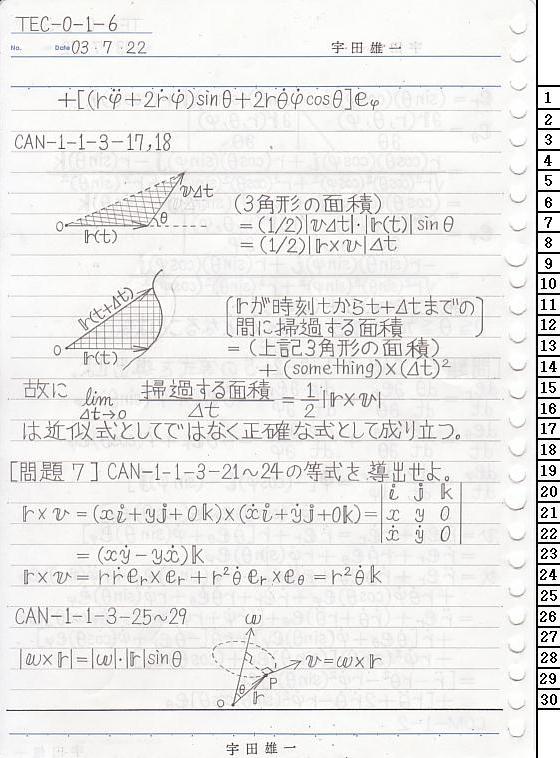 TEC-0-1-6
No.
Date 03・7・22
宇田雄一
+[(rφ̈+2ṙφ̇)sinθ+2rθ̇φ̇cosθ]𝕖φ
CAN-1-1-3-17,18
𝕧Δt
0
θ
𝕣(t)
(3角形の面積)
=(1/2)|𝕧Δt|・|𝕣(t)|sinθ
=(1/2)|𝕣×𝕧|Δt
𝕣(t+Δt)
0
𝕣(t)
[𝕣が時刻tからt+Δtまでの
間に掃過する面積]
=(上記3角形の面積)
+(something)×(Δt)²
故に lim Δt→0 掃過する面積/Δt = 1/2|𝕣×𝕧|
は近似式としてではなく正確な式として成り立つ。
[問題7]CAN-1-1-3-21〜24の等式を導出せよ。
𝕣×𝕧=(x𝕚+y𝕛+0𝕜)×(ẋ𝕚+ẏ𝕛+0𝕜)=|𝕚 𝕛 𝕜
x y 0
ẋ ẏ 0|
=(xẏ-yẋ)𝕜
𝕣×𝕧=rṙ𝕖r×𝕖r+r²θ̇𝕖r×𝕖θ=r²θ̇𝕜
CAN-1-1-3-25〜29
𝕨
|𝕨×𝕣|=|𝕨|・|𝕣|sinθ
𝕧=𝕨×𝕣
P
θ
𝕣
0
宇田雄一
1
2
3
4
5
6
7
8
9
10
11
12
13
14
15
16
17
18
19
20
21
22
23
24
25
26
27
28
29
30